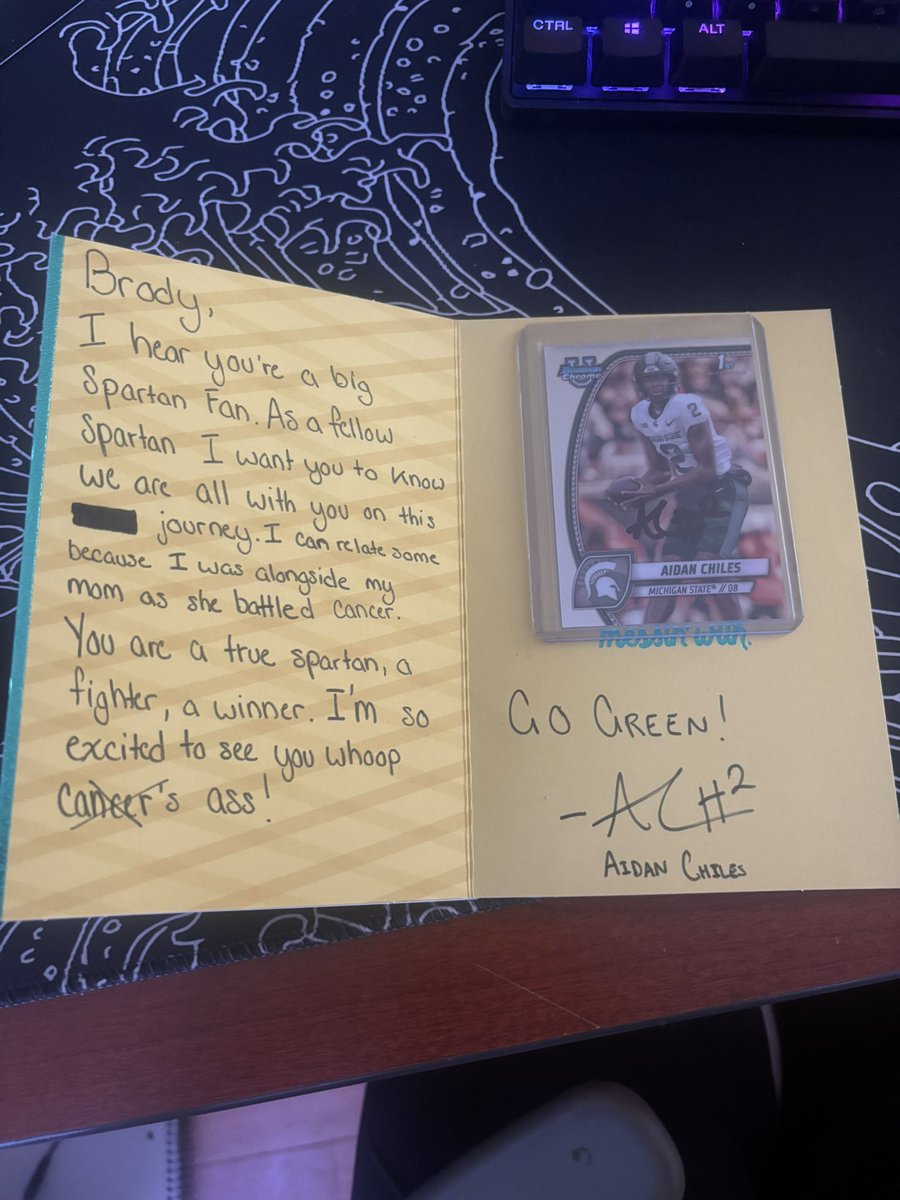 CTRL
ALT
Brody,
I hear you're a big
Spartan Fan. As a fellow
Spartan I want you to know
we are all with you on this
journey. I can relate some
because I was alongside my
mom as she battled cancer.
You are a true spartan, a
fighter, a winner. I'm so
excited to see you whoop
cancer's ass!
U
Bowman
Chrome
1st
2
2
AIDAN CHILES
MICHIGAN STATE® // QB
messin' with.
GO GREEN!
-AC#2
AIDAN CHILES